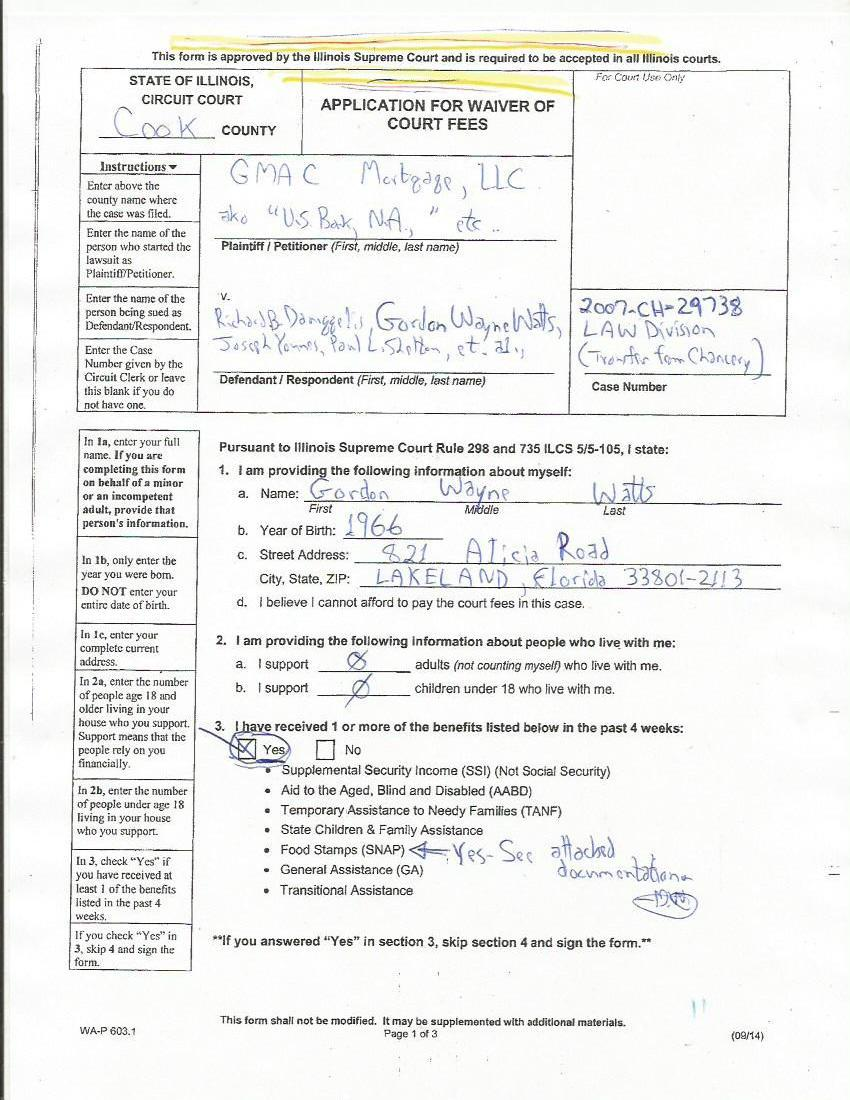 This form is approved by the Illinois Supreme Court and is required to be accepted in all Illinois courts.
STATE OF ILLINOIS,
CIRCUIT COURT
Cook COUNTY
APPLICATION FOR WAIVER OF
COURT FEES
For Court Use Only
Instructions ▾
Enter above the
county name where
the case was filed.
Enter the name of the
person who started the
lawsuit as
Plaintiff/Petitioner.
GMAC Mortgage, LLC
aka "U.S. Bank, N.A.," etc..
Plaintiff / Petitioner (First, middle, last name)
Enter the name of the
person being sued as
Defendant/Respondent.
Enter the Case
Number given by the
Circuit Clerk or leave
this blank if you do
not have one.
v.
Richard B. Daniggelis, Gordon Wayne Watts,
Joseph Younes, Paul L. Shelton, et. al.,
Defendant / Respondent (First, middle, last name)
2007-CH-29738
LAW Division
(Transfer from Chancery)
Case Number
In 1a, enter your full
name. If you are
completing this form
on behalf of a minor
or an incompetent
adult, provide that
person's information.
In 1b, only enter the
year you were born.
DO NOT enter your
entire date of birth.
In 1c, enter your
complete current
address.
In 2a, enter the number
of people age 18 and
older living in your
house who you support.
Support means that the
people rely on you
financially.
In 2b, enter the number
of people under age 18
living in your house
who you support.
In 3, check "Yes" if
you have received at
least 1 of the benefits
listed in the past 4
weeks.
If you check "Yes" in
3, skip 4 and sign the
form.
Pursuant to Illinois Supreme Court Rule 298 and 735 ILCS 5/5-105, I state:
1. I am providing the following information about myself:
a. Name: Gordon Wayne Watts
First Middle Last
b. Year of Birth: 1966
c. Street Address: 821 Alicia Road
City, State, ZIP: LAKELAND, Florida 33801-2113
d. I believe I cannot afford to pay the court fees in this case.
2. I am providing the following information about people who live with me:
a. I support Ø adults (not counting myself) who live with me.
b. I support Ø children under 18 who live with me.
3. I have received 1 or more of the benefits listed below in the past 4 weeks:
☒ Yes ☐ No
• Supplemental Security Income (SSI) (Not Social Security)
• Aid to the Aged, Blind and Disabled (AABD)
• Temporary Assistance to Needy Families (TANF)
• State Children & Family Assistance
• Food Stamps (SNAP) Yes - See attached
documentation
• General Assistance (GA)
• Transitional Assistance
**If you answered "Yes" in section 3, skip section 4 and sign the form.**
WA-P 603.1
This form shall not be modified. It may be supplemented with additional materials.
Page 1 of 3
(09/14)